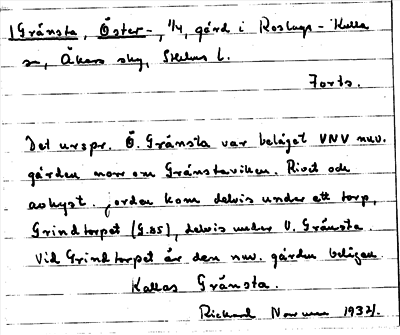 Gränsta, Öster-, 1/4, gård i Roslags-Kulla
sn, Åkers skg, Sthlms l.
Forts.
Det urspr. Ö. Gränsta var beläget VNV nuv.
gården norr om Gränstaviken. Rivet och
avhyst. jorden kom delvis under ett torp,
Grindtorpet (S.85), delvis under V. Gränsta.
Vid Grindtorpet är den nuv. gården belägen.
Kallas Gränsta.
Rickard 1932.